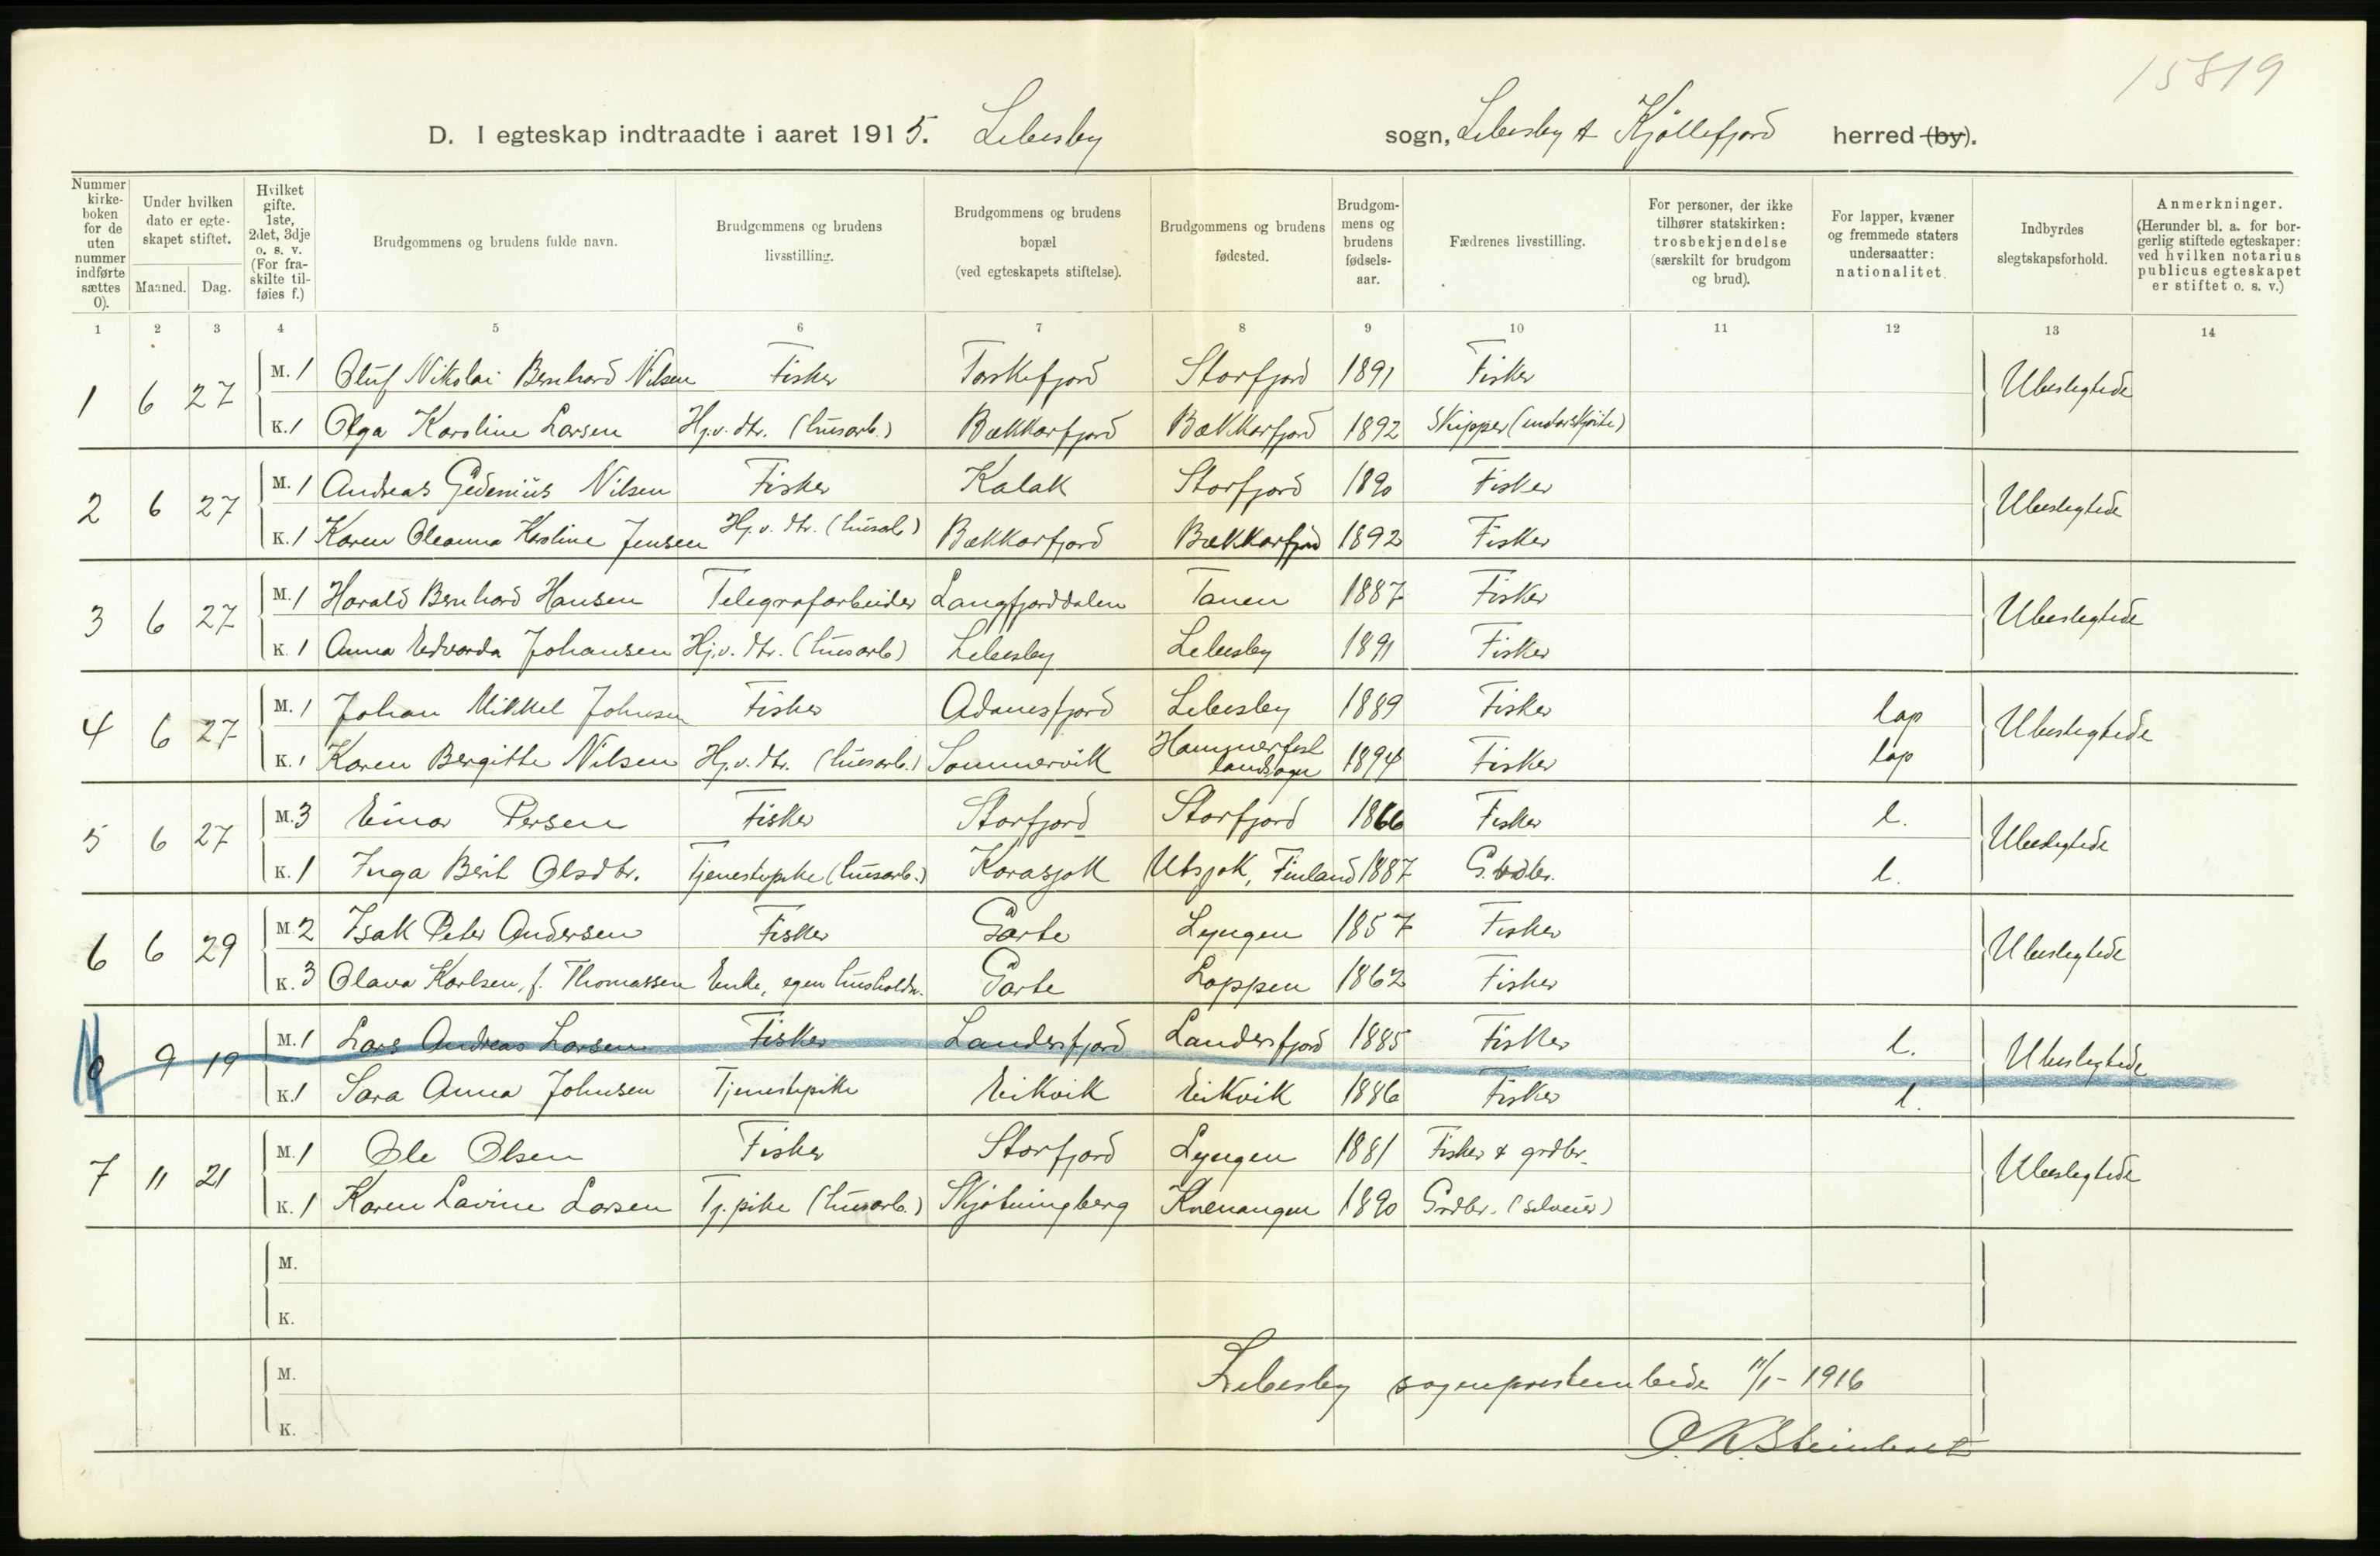 15819
D. I egteskap indtraadte i aaret 1915. Lebesby sogn, Lebesby & Kjøllefjord herred (by).
Nummer i kirkeboken for de uten nummer indførte sættes 0).
Under hvilken dato er egteskapet stiftet.
Maaned. Dag.
Hvilket gifte. 1ste, 2det, 3dje o. s. v. (For fraskilte tilføies f.)
Brudgommens og brudens fulde navn.
Brudgommens og brudens livsstilling.
Brudgommens og brudens bopæl (ved egteskapets stiftelse).
Brudgommens og brudens fødested.
Brudgommens og brudens fødselsaar.
Fædrenes livsstilling.
For personer, der ikke tilhører statskirken: trosbekjendelse (særskilt for brudgom og brud).
For lapper, kvæner og fremmede staters undersaatter: nationalitet
Indbyrdes slegtskapsforhold.
Anmerkninger. (Herunder bl. a. for borgerlig stiftede egteskaper: ved hvilken notarius publicus egteskapet er stiftet o. s. v.)
1 2 3 4 5 6 7 8 9 10 11 12 13 14
1 6 27 M. 1 Oluf Nikolai Bernhard Nilsen Fisker Torskefjord Storfjord 1891 Fisker Ubeslegtede
K. 1 Olga Karoline Larsen Hj.v. dtr. (husarb.) Bekkarfjord Bekkarfjord 1892 Skipper
2 6 27 M. 1 Andreas Gedenius Nilsen Fisker Kalak Storfjord 1890 Fisker Ubeslegtede
K. 1 Karen Oleanna Hesline Jensen Hj.v. dtr. (husarb) Bekkarfjord Bekkarfjord 1892 Fisker
3 6 27 M. 1 Harald Bernhard Hansen Telegrafarbeider Langfjorddalen Tanen 1887 Fisker Ubeslegtede
K. 1 Anna Edvarda Johansen Hj.v. dtr. (husarb) Lebesby Lebesby 1891 Fisker
4 6 27 M. 1 Johan Mikkel Johnsen Fisker Adamsfjord Lebesby 1889 Fisker lap Ubeslegtede
K. 1 Karen Bergitte Nilsen Hj.v. dtr. (husarb.) Sommervik Hammerfest landsogn 1894 Fisker lap
5 6 27 M. 3 Einar Persen Fisker Storfjord Storfjord 1866 Fisker l. Ubeslegtede
K. 1 Inga Berit Olsdtr. Tjenestepike (husarb.) Karasjok Utsjok, Finland 1887 G.brdbr. l.
6 6 29 M. 2 Isak Peter Andersen Fisker Garte Lyngen 1857 Fisker Ubeslegtede
K. 3 Olava Karlsen, f. Thomassen Enke, egen husholdn. Garte Loppen 1862 Fisker
0 9 19 M. 1 Lars Andreas Larsen Fisker Landersfjord Landersfjord 1885 Fisker l. Ubeslegtede
K. 1 Sara Anna Johnsen Tjenestepike Eikvik Eikvik 1886 Fisker l.
7 11 21 M. 1 Ole Olsen Fisker Storfjord Lyngen 1881 Fisker & grdbr. Ubeslegtede
K. 1 Karen Lavine Larsen Tj. pike (husarb.) Skjøtningberg Kvenangen 1890 Grdbr. (selveier)
M.
K.
M.
K.
Lebesby sogneprestembede 11/1 - 1916